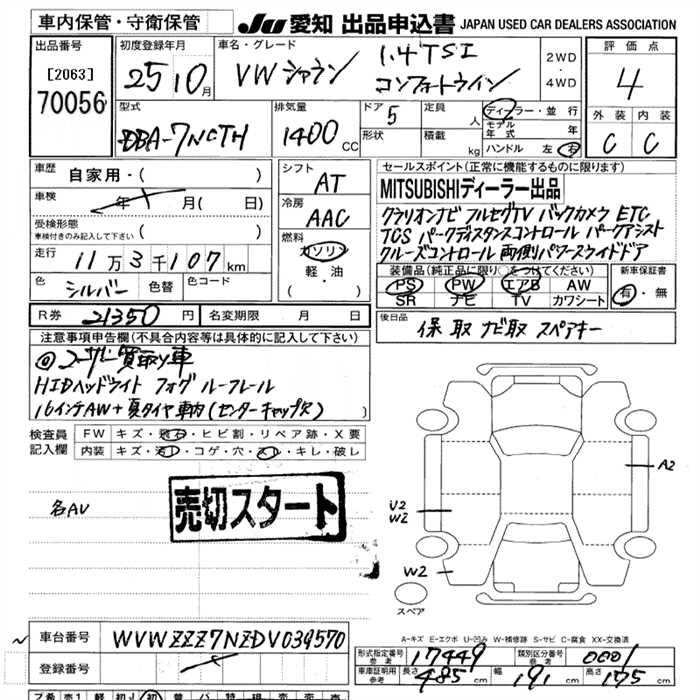 車内保管・守衛保管
JU 愛知 出品申込書 JAPAN USED CAR DEALERS ASSOCIATION
出品番号 [2063] 70056
初度登録年月 25 10月
車名・グレード VW シャラン 1.4TSI コンフォートライン
2WD ・ 4WD
評価点 4
外装 C 内装 C
型式 DBA-7NCTH
排気量 1400 CC
ドア 5 形状
定員 人 積載 kg
ディーラー・並行
モデル年式 年
ハンドル 左・右
車歴 自家用・( )
車検 年 月( 日)
受検形態 ( )
車検付きのみ記入して下さい
走行 11万3千107km
色 シルバー 色替 色コード
シフト AT
冷房 AAC
燃料 ガソリン 軽・油 ( ・ )
セールスポイント(正常に機能するものに限ります)
MITSUBISHIディーラー出品
クラリオンナビ フルセグTV バックカメラ ETC
TCS パークディスタンスコントロール パークアシスト
クルーズコントロール 両側パワースライドドア
装備品(純正品に限り○をつけてください)
PS PW エアB AW
SR ナビ TV カワシート
新車保証書 有・無
R券 21350 円 名変期限 月 日
後日品 保 取 ナビ取 スペアキー
注意事項申告欄(不具合内容等は具体的に記入して下さい)
◎ユーザー買取り車
HIDヘッドライト フォグ ルーフレール
16インチAW+夏タイヤ車内(センターキャップ欠)
検査員記入欄
FW キズ・飛石・ヒビ割・リペア跡・X要
内装 キズ・汚れ・コゲ・穴・スレ・キレ・破レ
名AV
売切スタート
A2
U2
W2
W2
スペア
A-キズ E-エクボ U-凹み W-補修跡 S-サビ C-腐食 XX-交換済
車台番号 WVWZZZ7NZDV034570
登録番号
形式指定番号 参考 17449 類別区分番号 参考 0001
車庫証明用 参考 長さ 485 cm 幅 191 cm 高さ 175 cm